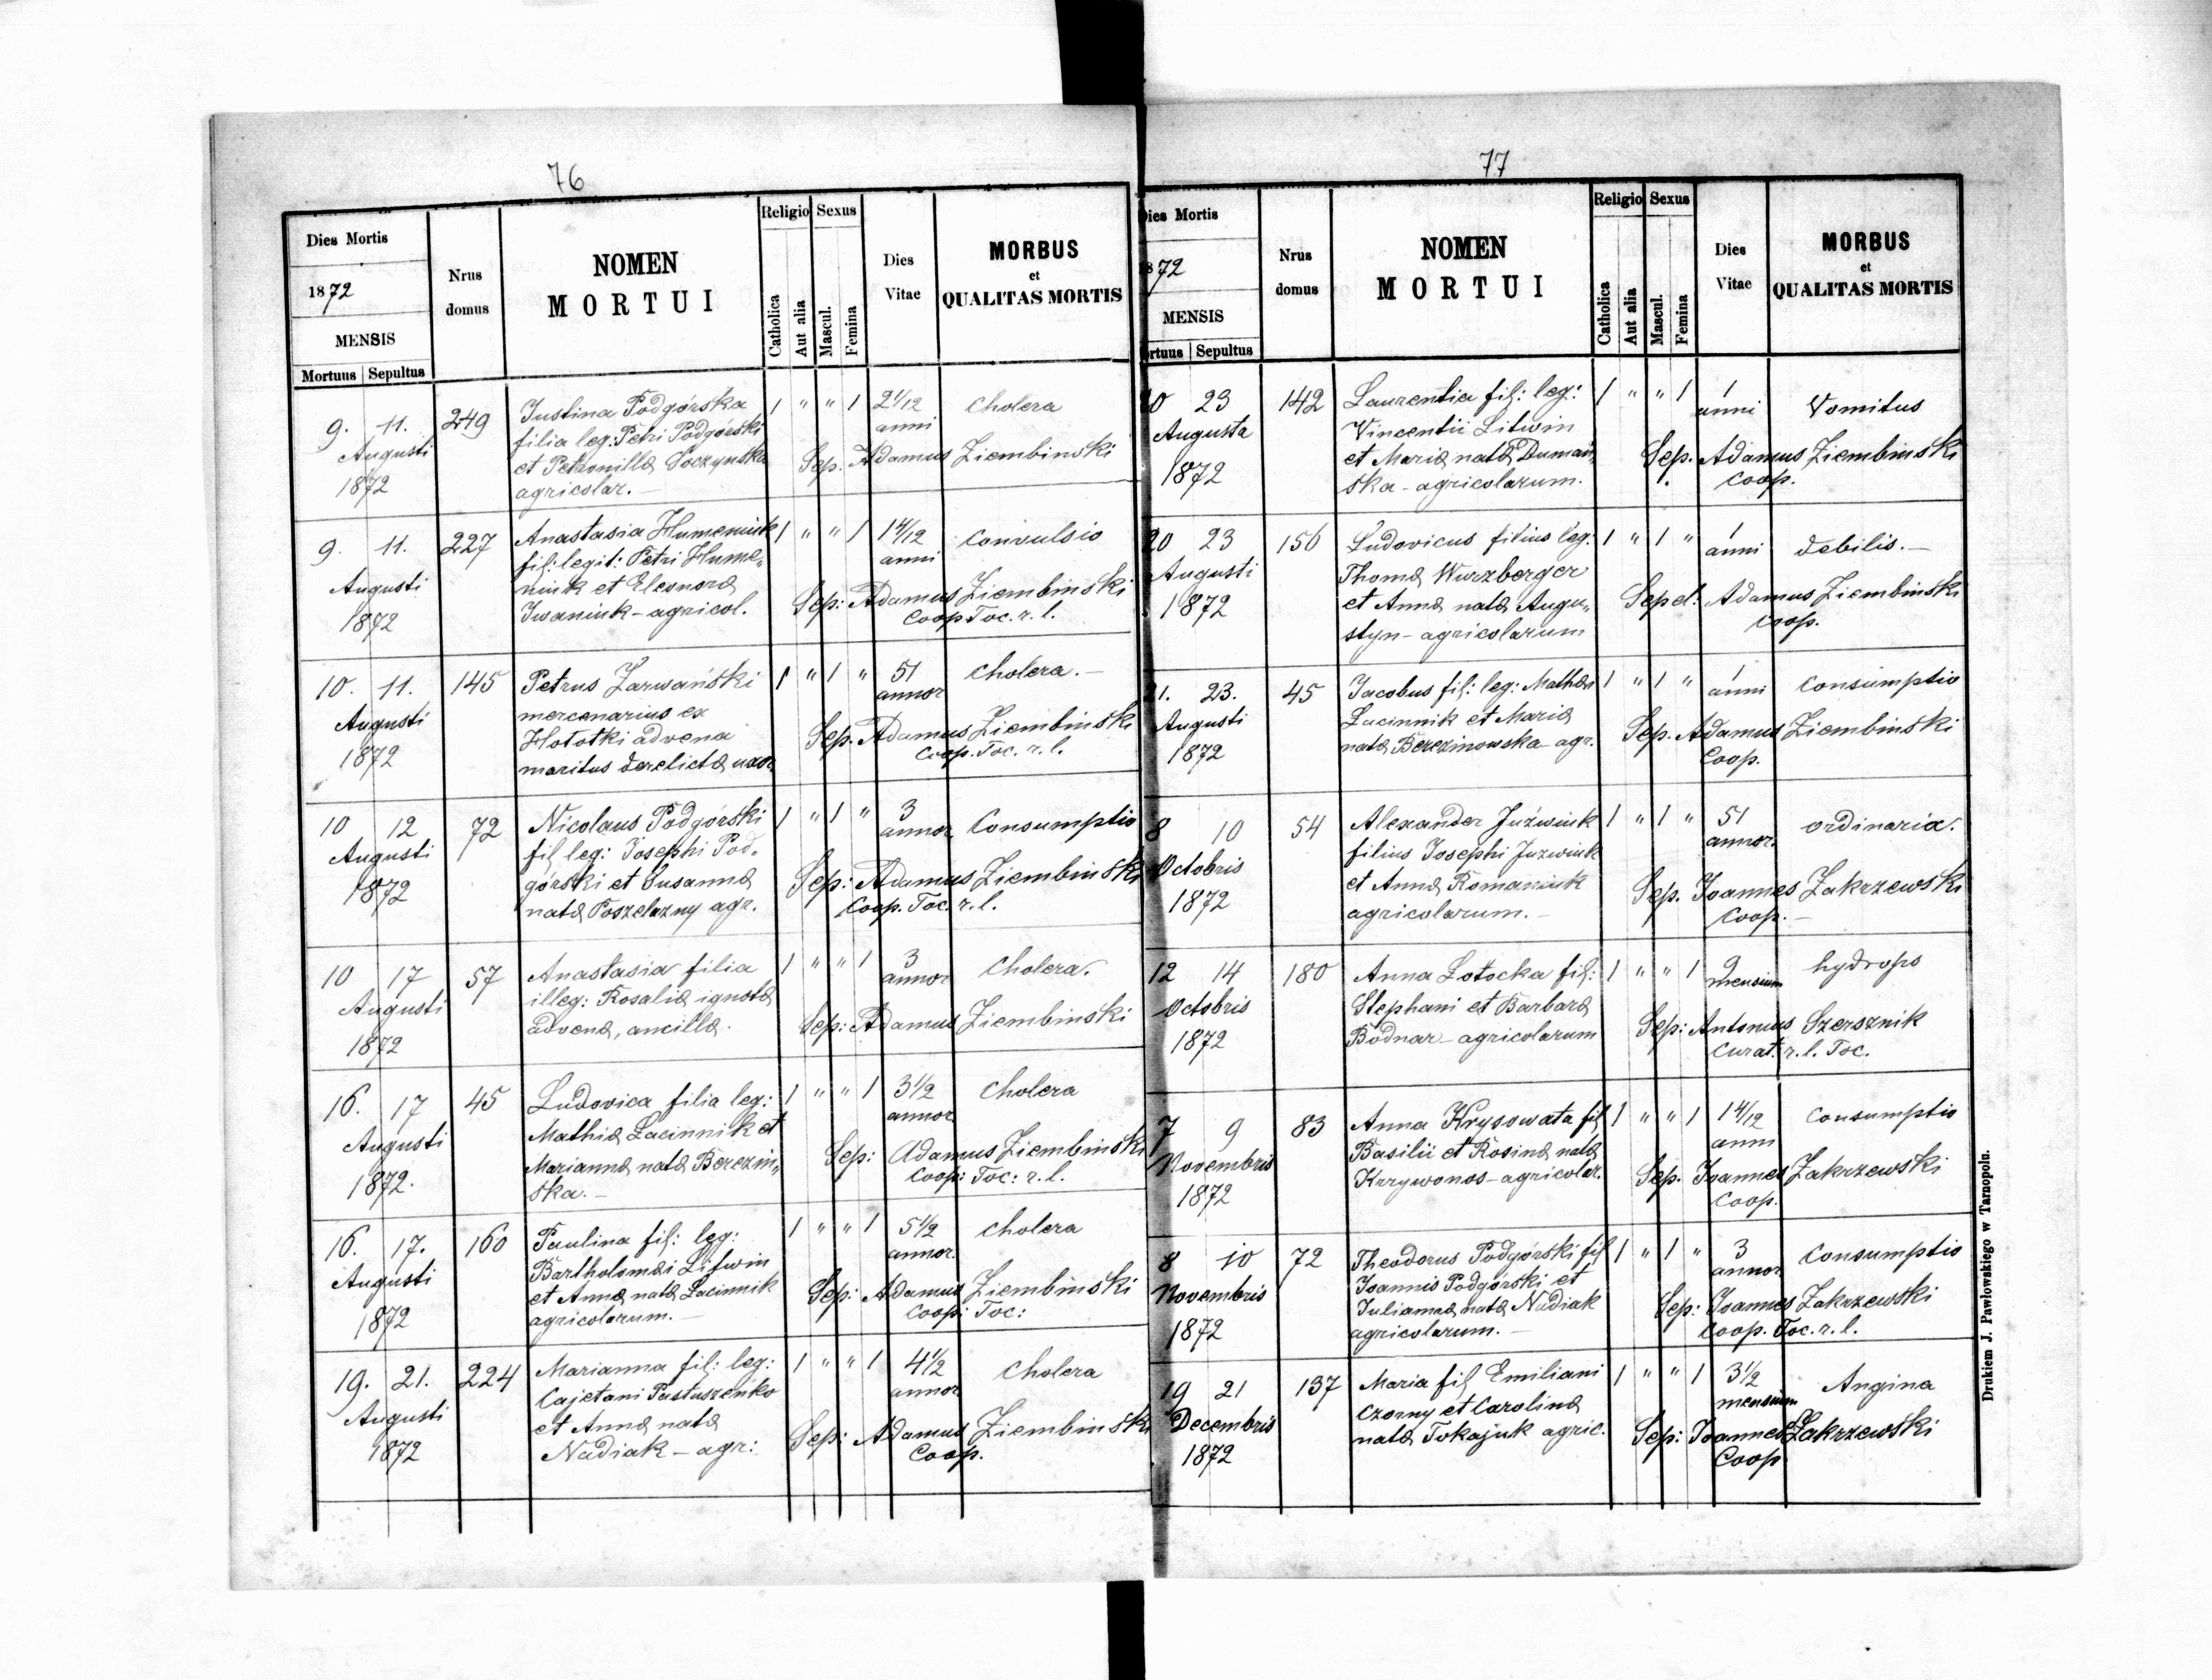 76
Dies Mortis
1872
MENSIS
Mortuus Sepultus
Nrus domus
NOMEN MORTUI
Religio Sexus
Catholica Aut alia Mascul. Femina
Dies Vitae
MORBUS et QUALITAS MORTIS
9. 11. 249 Justina Podgórska 1 " " 1 2 1/12 cholera
Augusti filia leg: Petri Podgórski anni
1872 et Petronilla Soczynska Sep. Adamus Ziembinski
agricolar.—
9. 11. 227 Anastasia Humeniuk 1 " " 1 1 4/12 convulsio
Augusti fil: legit: Petri Hume„ anni
1872 niuk et Eleonora Sep: Adamus Ziembinski
Iwaniuk - agricol. Coop Toc. r. l.
10. 11. 145 Petrus Zarwański 1 " 1 " 51 cholera.—
Augusti mercenarius ex annor
1872 Hototki advena Sep. Adamus Ziembinski
maritus derelicta uxor Coop. Toc. r. l.
10 12 72 Nicolaus Podgórski 1 " 1 " 3 Consumptio
Augusti fil leg: Josephi Pod„ annor
1872 górski et Susanna Sep: Adamus Ziembinski
nata Poszelazny agr. Coop. Toc. r. l.
10 17 57 Anastasia filia 1 " " 1 3 cholera.
Augusti illeg: Rosalia ignota annor
1872 advena, ancilla. Sep: Adamus Ziembinski
16. 17 45 Ludovica filia leg: 1 " " 1 3 1/2 cholera
Augusti Mathia Łacinnik et annor
1872. Marianna nata Berezin„ Sep: Adamus Ziembinski
ska.— Coop: Toc: r. l.
16. 17. 160 Paulina fil: leg: 1 " " 1 5 1/2 cholera
Augusti Bartholomai Litwin annor.
1872 et Anna nata Łacinnik Sep: Adamus Ziembinski
agricolarum.— Coop: Toc:
19. 21. 224 Marianna fil: leg: 1 " " 1 4 1/2 cholera
Augusti Cajetani Pastuszenko annor
1872 et Anna nata Sep: Adamus Ziembinski
Nadiak - agr: Coop.
77
Dies Mortis
1872
MENSIS
Mortuus Sepultus
Nrus domus
NOMEN MORTUI
Religio Sexus
Catholica Aut alia Mascul. Femina
Dies Vitae
MORBUS et QUALITAS MORTIS
20 23 142 Laurentia fil: leg: 1 " " 1 1 Vomitus
Augusta Vincentii Litwin anni
1872 et Maria nata Dumań„ Sep. Adamus Ziembinski
ska - agricolarum. Coop.
20 23 156 Ludovicus filius leg. 1 " 1 " 1 debilis.—
Augusti Thoma Wurzberger anni
1872 et Anna nata Augu„ Sepel: Adamus Ziembinski
styn - agricolarum Coop.
21. 23. 45 Jacobus fil: leg: Mathei 1 " 1 " 1 consumptio
Augusti Łacinnik et Maria anni
1872 nata Berezinowska agr. Sep. Adamus Ziembinski
Coop.
8 10 54 Alexander Juźwiuk 1 " 1 " 51 ordinaria.
Octobris filius Josephi Juzwiuk annor.
1872 et Anna Romaniuk Sep. Joannes Zakrzewski
agricolarum.— Coop.—
12 14 180 Anna Łotocka fil: 1 " " 1 9 hydrops
Octobris Stephani et Barbara mensium
1872 Bodnar - agricolarum Sep: Antonius Szersznik
Curat. r. l. Toc.
7 9 83 Anna Krysowata fil 1 " " 1 1 4/12 consumptio
Novembris Basilii et Rosina nata anni
1872 Krzywonos - agricolar. Sep. Joannes Zakrzewski
Coop.
8 10 72 Theodorus Podgórski fil 1 " 1 " 3 Consumptio
Novembris Joannis Podgórski et annor
1872 Julianna nata Nadiak Sep: Joannes Zakrzewski
agricolarum.— Coop. Toc. r. l.
19 21 137 Maria fil Emiliani 1 " " 1 3 1/2 Angina
Decembris Czorny et Carolina mensium
1872 nata Tokajuk agric. Sep: Joannes Zakrzewski
Coop
Drukiem J. Pawłowskiego w Tarnopolu.